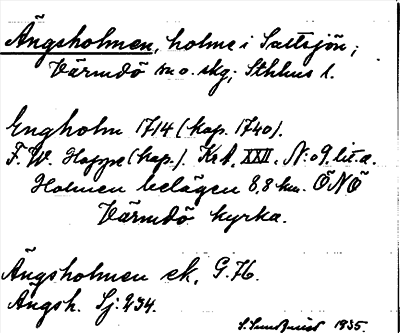 Ängsholmen, holme i Saltsjön;
Värmdö sn o. skg; Sthlms l.
Engholm 1714 (kop. 1740).
F. W. Hoppe (kop.). Krt. XXII. N:o 9. lit. a.
Holmen belägen 8,8 km. ÖNÖ
Värmdö kyrka.
Ängsholmen ek. G. 76.
Ängsh. Sj: 234.
S. Sundquist 1935.